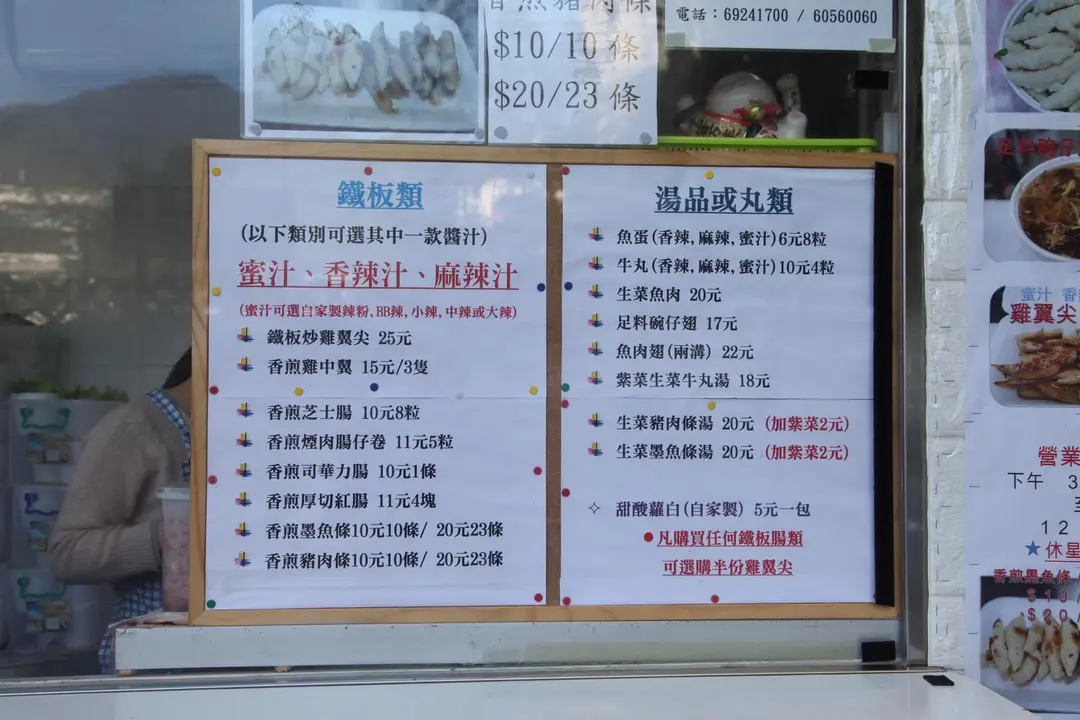 香煎豬肉條
$10/10 條
$20/23 條
電話：69241700 / 60560060
鐵板類
(以下類別可選其中一款醬汁)
蜜汁、香辣汁、麻辣汁
(蜜汁可選自家製辣粉, BB辣, 小辣, 中辣或大辣)
鐵板炒雞翼尖 25元
香煎雞中翼 15元/3隻
香煎芝士腸 10元8粒
香煎煙肉腸仔卷 11元5粒
香煎司華力腸 10元1條
香煎厚切紅腸 11元4塊
香煎墨魚條10元10條/ 20元23條
香煎豬肉條10元10條/ 20元23條
湯品或丸類
魚蛋(香辣, 麻辣, 蜜汁)6元8粒
牛丸(香辣, 麻辣, 蜜汁)10元4粒
生菜魚肉 20元
足料碗仔翅 17元
魚肉翅(兩溝) 22元
紫菜生菜牛丸湯 18元
生菜豬肉條湯 20元 (加紫菜2元)
生菜墨魚條湯 20元 (加紫菜2元)
甜酸蘿白(自家製) 5元一包
凡購買任何鐵板腸類
可選購半份雞翼尖
足料碗仔
蜜汁 香
雞翼尖
營業
下午 3
至
12
★休星
香煎墨魚條
$10
$20